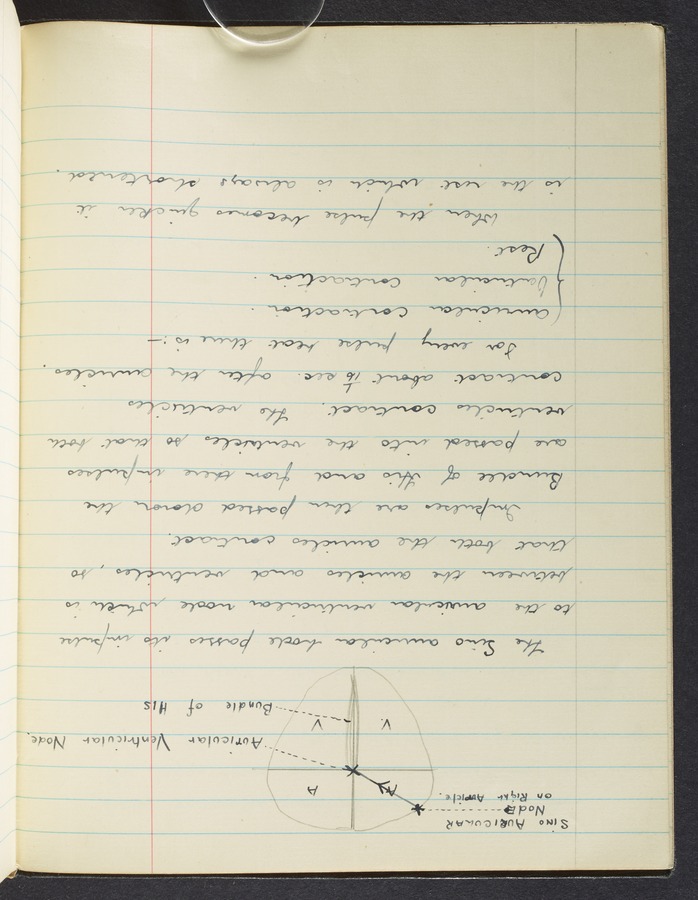 SINO AURICULAR
NODE
on Right Auricle.
A
A
Auricular Ventricular Node.
V.
V
Bundle of HIS
The Sino auricular node passes its impulse
to the auricular ventricular node which is
between the auricles and ventricles, so
that both the auricles contract.
Impulses are then passed down the
Bundle of His and from there impulses
are passed into the ventricles so that both
ventricles contract. The ventricles
contract about 1/10 sec. after the auricles.
For every pulse beat there is :-
auricular contraction.
Ventricular contraction.
Rest.
When the pulse becomes quicker it
is the rest which is always shortened.